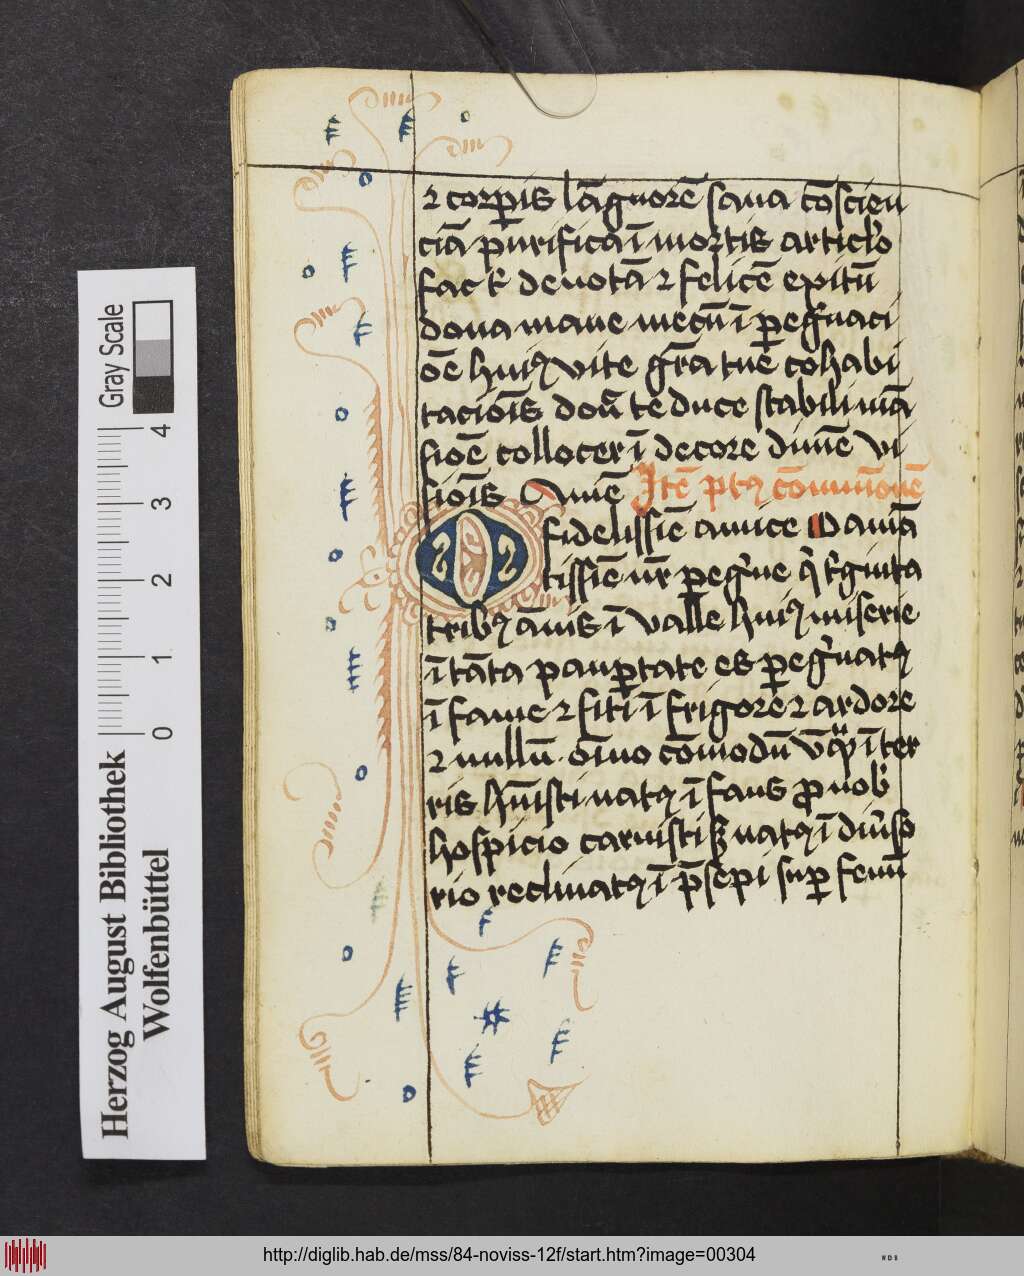 ⁊ corꝑis lāguorē sana cōscien
ciā purifica ī mortis articlo
fac k̄ deuotā ⁊ felicē exitū
dona mane mecū ī peg͛naci
oē huiꝰ vite gr̄a tue cohabi
tacioīs don̄ te duce stabili mā
sioē collocer ī decore diuīe vi
sioīs Amē Itē pꝰ cōmūioнē
O fidelissīe amice O amā
tissīe nr̄ peg͛ne q̄ t͛ginta
tribꝰ ānis ī valle huiꝰ miserie
ī tāta pauꝑtate es peg͛natꝰ
ī fame ⁊ siti ī frigore ⁊ ardore
⁊ nullū oīno cōmodū vq̄ ī ter
ris hūisti natꝰ ī fans ꝓ nob̄
hospicio caruisti ꝫ natꝰ ī diu͛so
rio reclinatꝰ ī p̄sepi suꝑ fenū
Gray Scale
4
3
2
1
0
Herzog August Bibliothek
Wolfenbüttel
http://diglib.hab.de/mss/84-noviss-12f/start.htm?image=00304